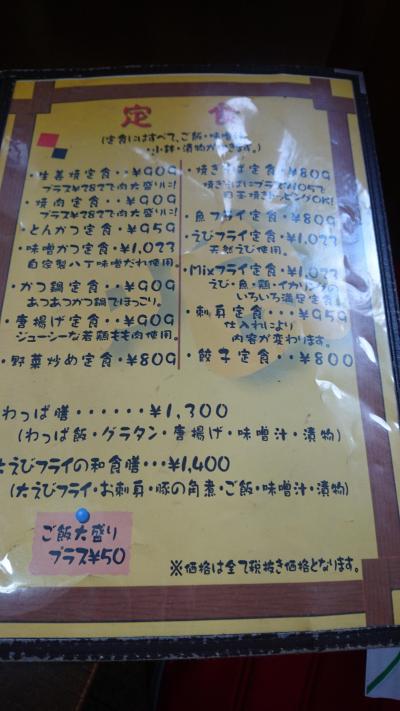 定食
(定食にはすべて、ご飯・味噌
・小鉢・漬物が きます。)
・生姜焼定食・・¥909
プラス¥282で肉大盛りに!
・焼肉定食・・・¥909
プラス¥282で肉大盛りに!
・とんかつ定食・・¥959
・味噌かつ定食・¥1,023
自家製八丁味噌だれ使用。
・かつ鍋定食・・¥909
あつあつかつ鍋でほっこり。
・唐揚げ定食・・¥909
ジューシーな若鶏もも肉使用。
・野菜炒め定食・¥809
・焼きそば定食・¥809
焼きそばにプラス¥105で
目玉焼きトッピングOK!
・魚フライ定食・・¥809
・えびフライ定食・¥1,023
天然えび使用。
・Mixフライ定食・¥1,023
えび・魚・鶏・イカリングの
いろいろ満足定食!
・刺身定食・・・¥959
仕入れにより
内容が変わります。
・餃子定食・・¥800
わっぱ膳・・・・・・¥1,300
(わっぱ飯・グラタン・唐揚げ・味噌汁・漬物)
大えびフライの和食膳・・・¥1,400
(大えびフライ・お刺身・豚の角煮・ご飯・味噌汁・漬物)
ご飯大盛り
プラス¥50
※価格は全て税抜き価格となります。